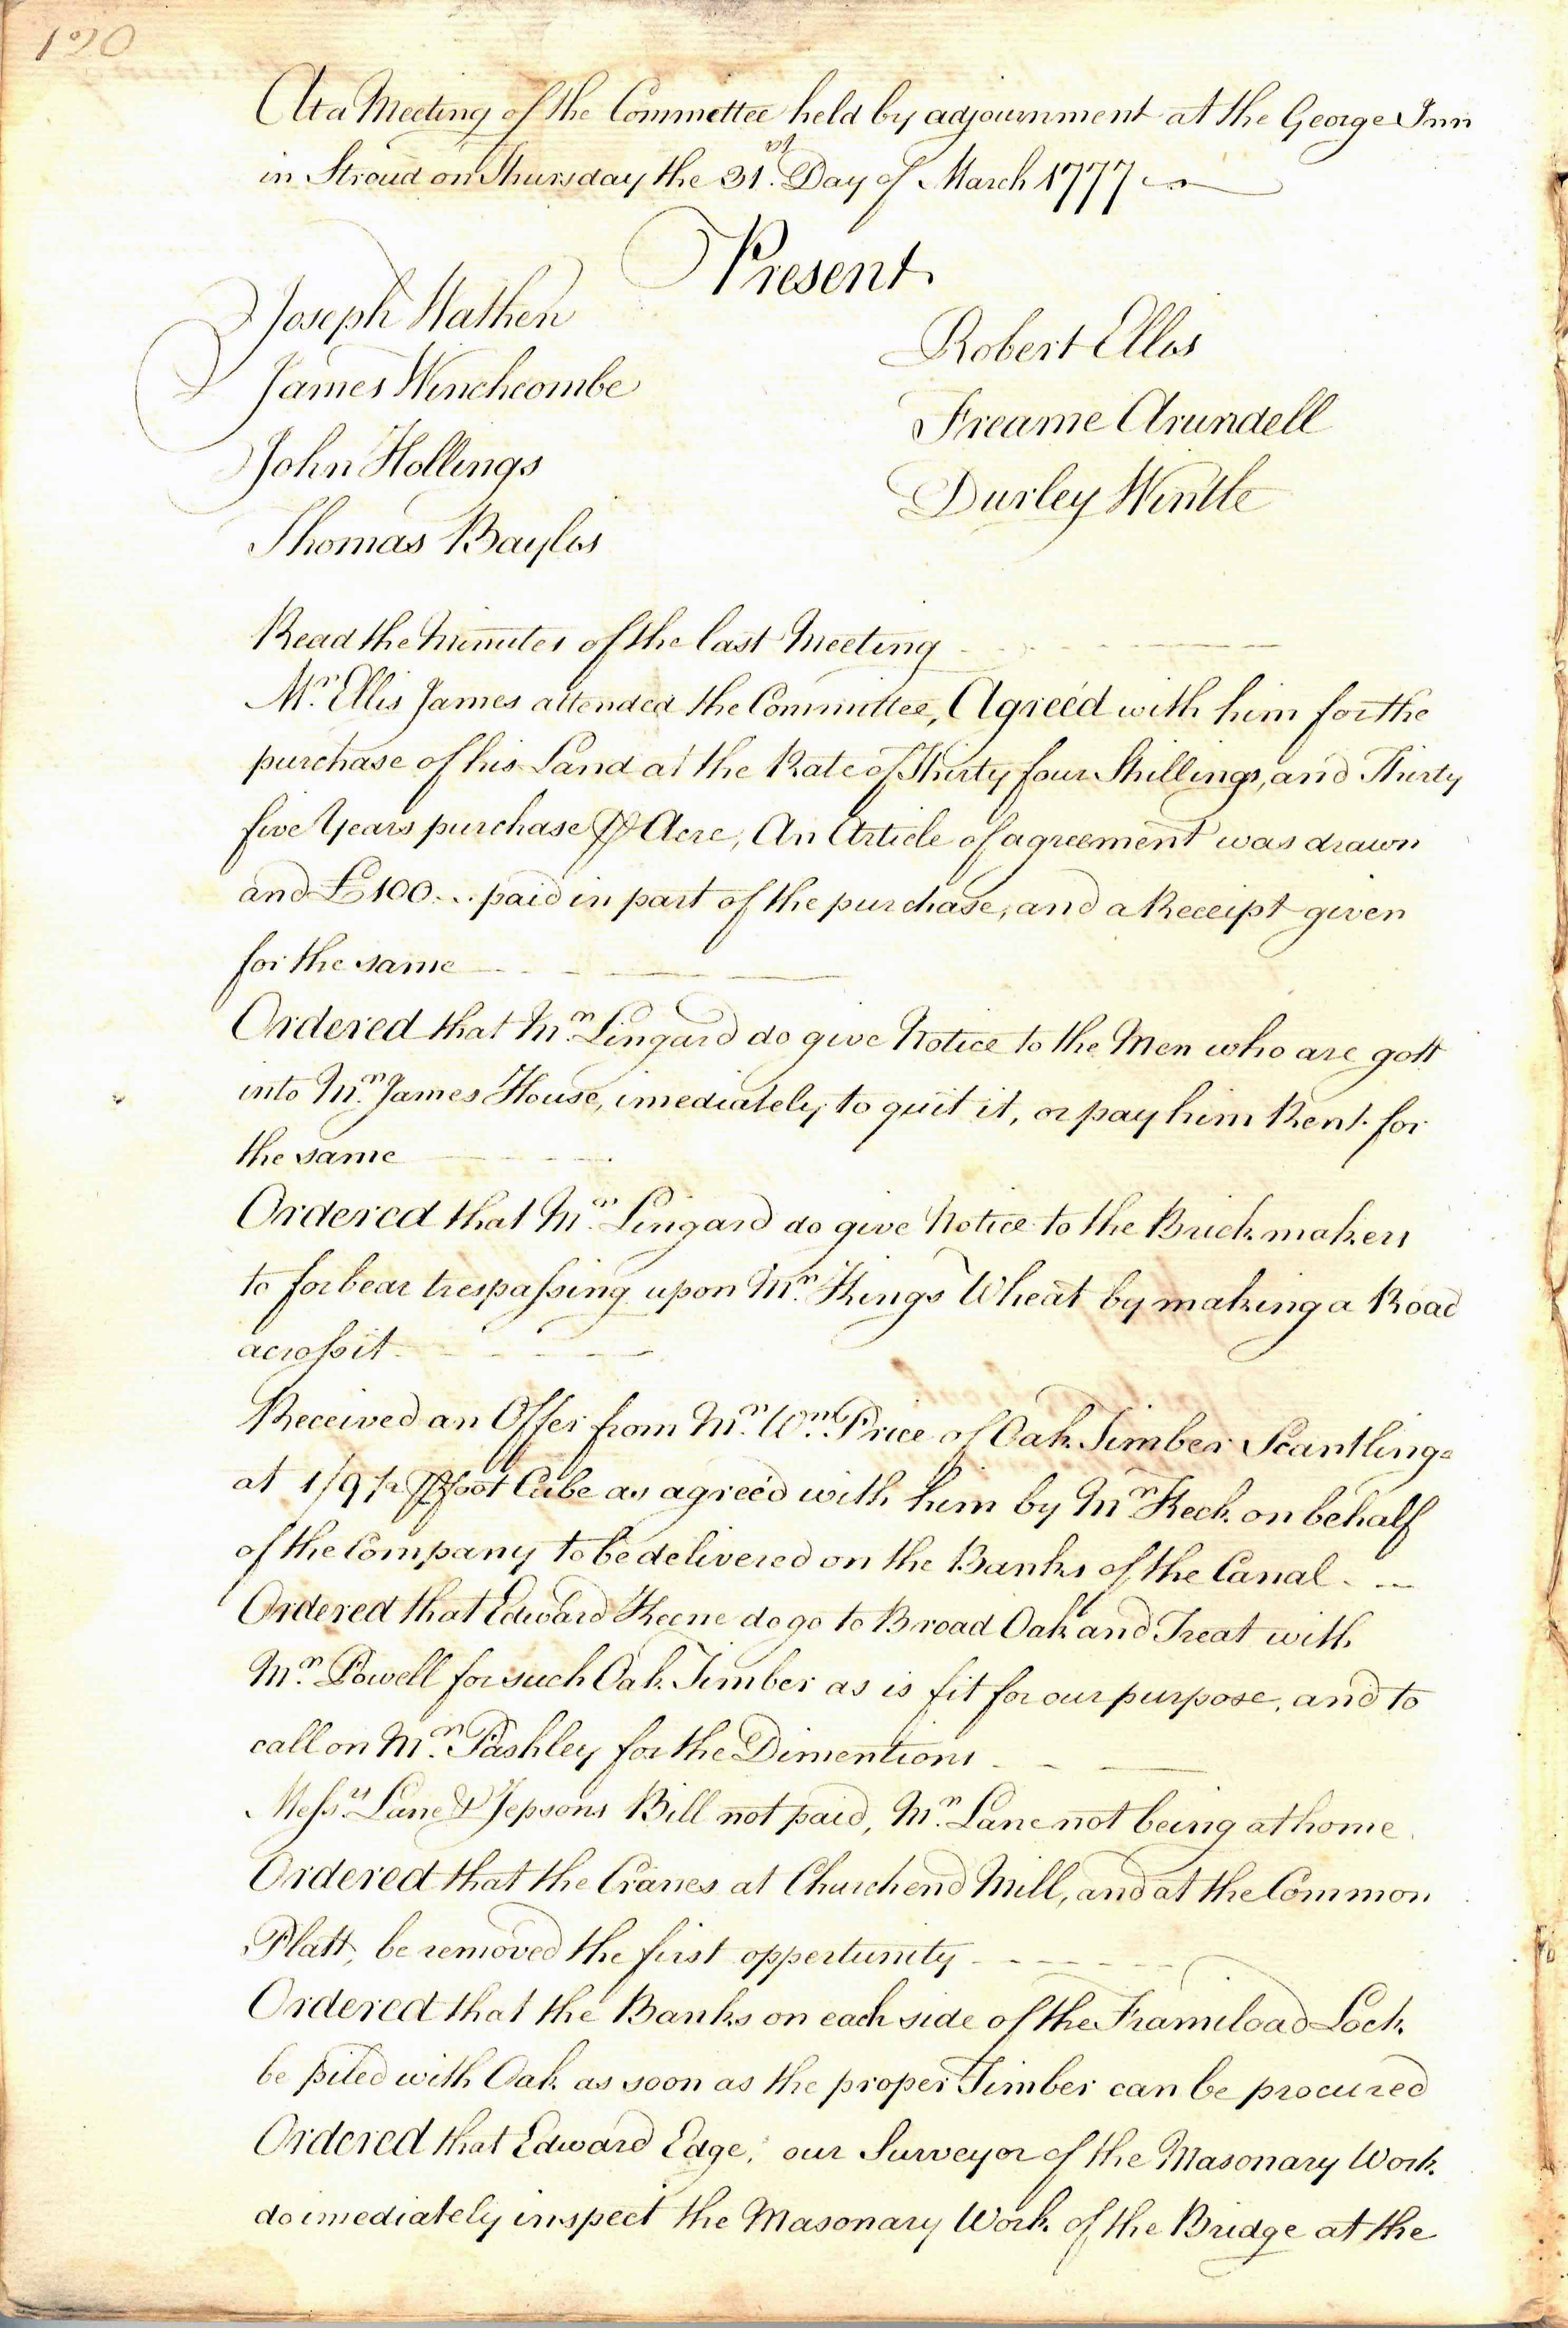 120
At a Meeting of the Committee held by adjournment at the George Inn
in Stroud on Thursday the 31.st Day of March 1777
Present
Joseph Wathen
James Winchcombe
John Hollings
Thomas Baylis
Robert Ellis
Freame Arundell
Durley Wintle
Read the Minutes of the last Meeting
Mr. Ellis James attended the Committee, Agreed with him for the
purchase of his Land at the Rate of Thirty four Shillings, and Thirty
five Years purchase ⅌ Acre, An Article of agreement was drawn
and £100... paid in part of the purchase, and a Receipt given
for the same
Ordered that Mr. Lingard do give Notice to the Men who are gott
into Mr. James House, imediately to quit it, or pay him Rent for
the same
Ordered that Mr. Lingard do give Notice to the Brickmakers
to forbear trespaſsing upon Mr. Kings Wheat by making a Road
acroſs it
Received an Offer from Mr. Wm. Price of Oak Timber Scantlings
at 1/9½ ⅌ foot Cube as agreed with him by Mr. Keck on behalf
of the Company to be delivered on the Banks of the Canal
Ordered that Edward Keene do go to Broad Oak and Treat with
Mr. Powell for such Oak Timber as is fit for our purpose, and to
call on Mr. Pashley for the Dimentions
Meſsrs. Lane & Jepsons Bill not paid, Mr. Lane not being at home
Ordered that the Cranes at Churchend Mill, and at the Common
Platt, be removed the first oppertunity
Ordered that the Banks on each side of the Framiload Lock
be piled with Oak as soon as the proper Timber can be procured
Ordered that Edward Edge, our Surveyor of the Masonary Work
do imediately inspect the Masonary Work of the Bridge at the